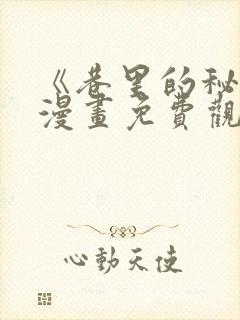 《巷里的秘
漫畫免費觀
心動天使